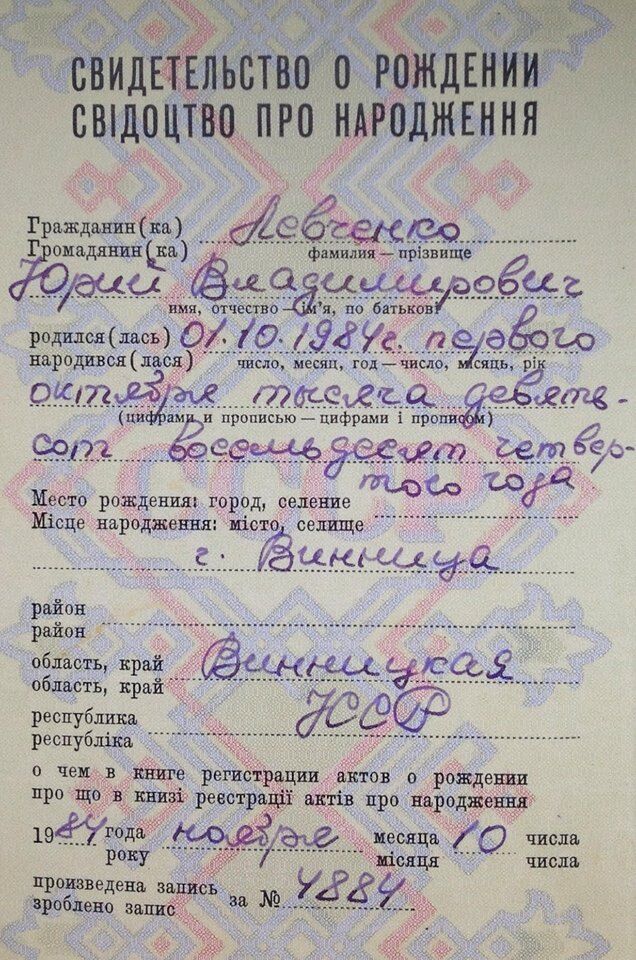 СВИДЕТЕЛЬСТВО О РОЖДЕНИИ
СВІДОЦТВО ПРО НАРОДЖЕННЯ
Гражданин(ка) Левченко
Громадянин(ка) фамилия — прізвище
Юрий Владимирович
имя, отчество — ім'я, по батькові
родился(лась) 01.10.1984г. первого
народився(лася) число, месяц, год — число, місяць, рік
октября тысяча девять-
(цифрами и прописью — цифрами і прописом)
сот восемьдесят четвер-
того года
Место рождения: город, селение
Місце народження: місто, селище
г. Винница
район
район
область, край Винницкая
область, край
республика УССР
республіка
о чем в книге регистрации актов о рождении
про що в книзі реєстрації актів про народження
1984 года ноября месяца 10 числа
року місяця числа
произведена запись за № 4884
зроблено запис